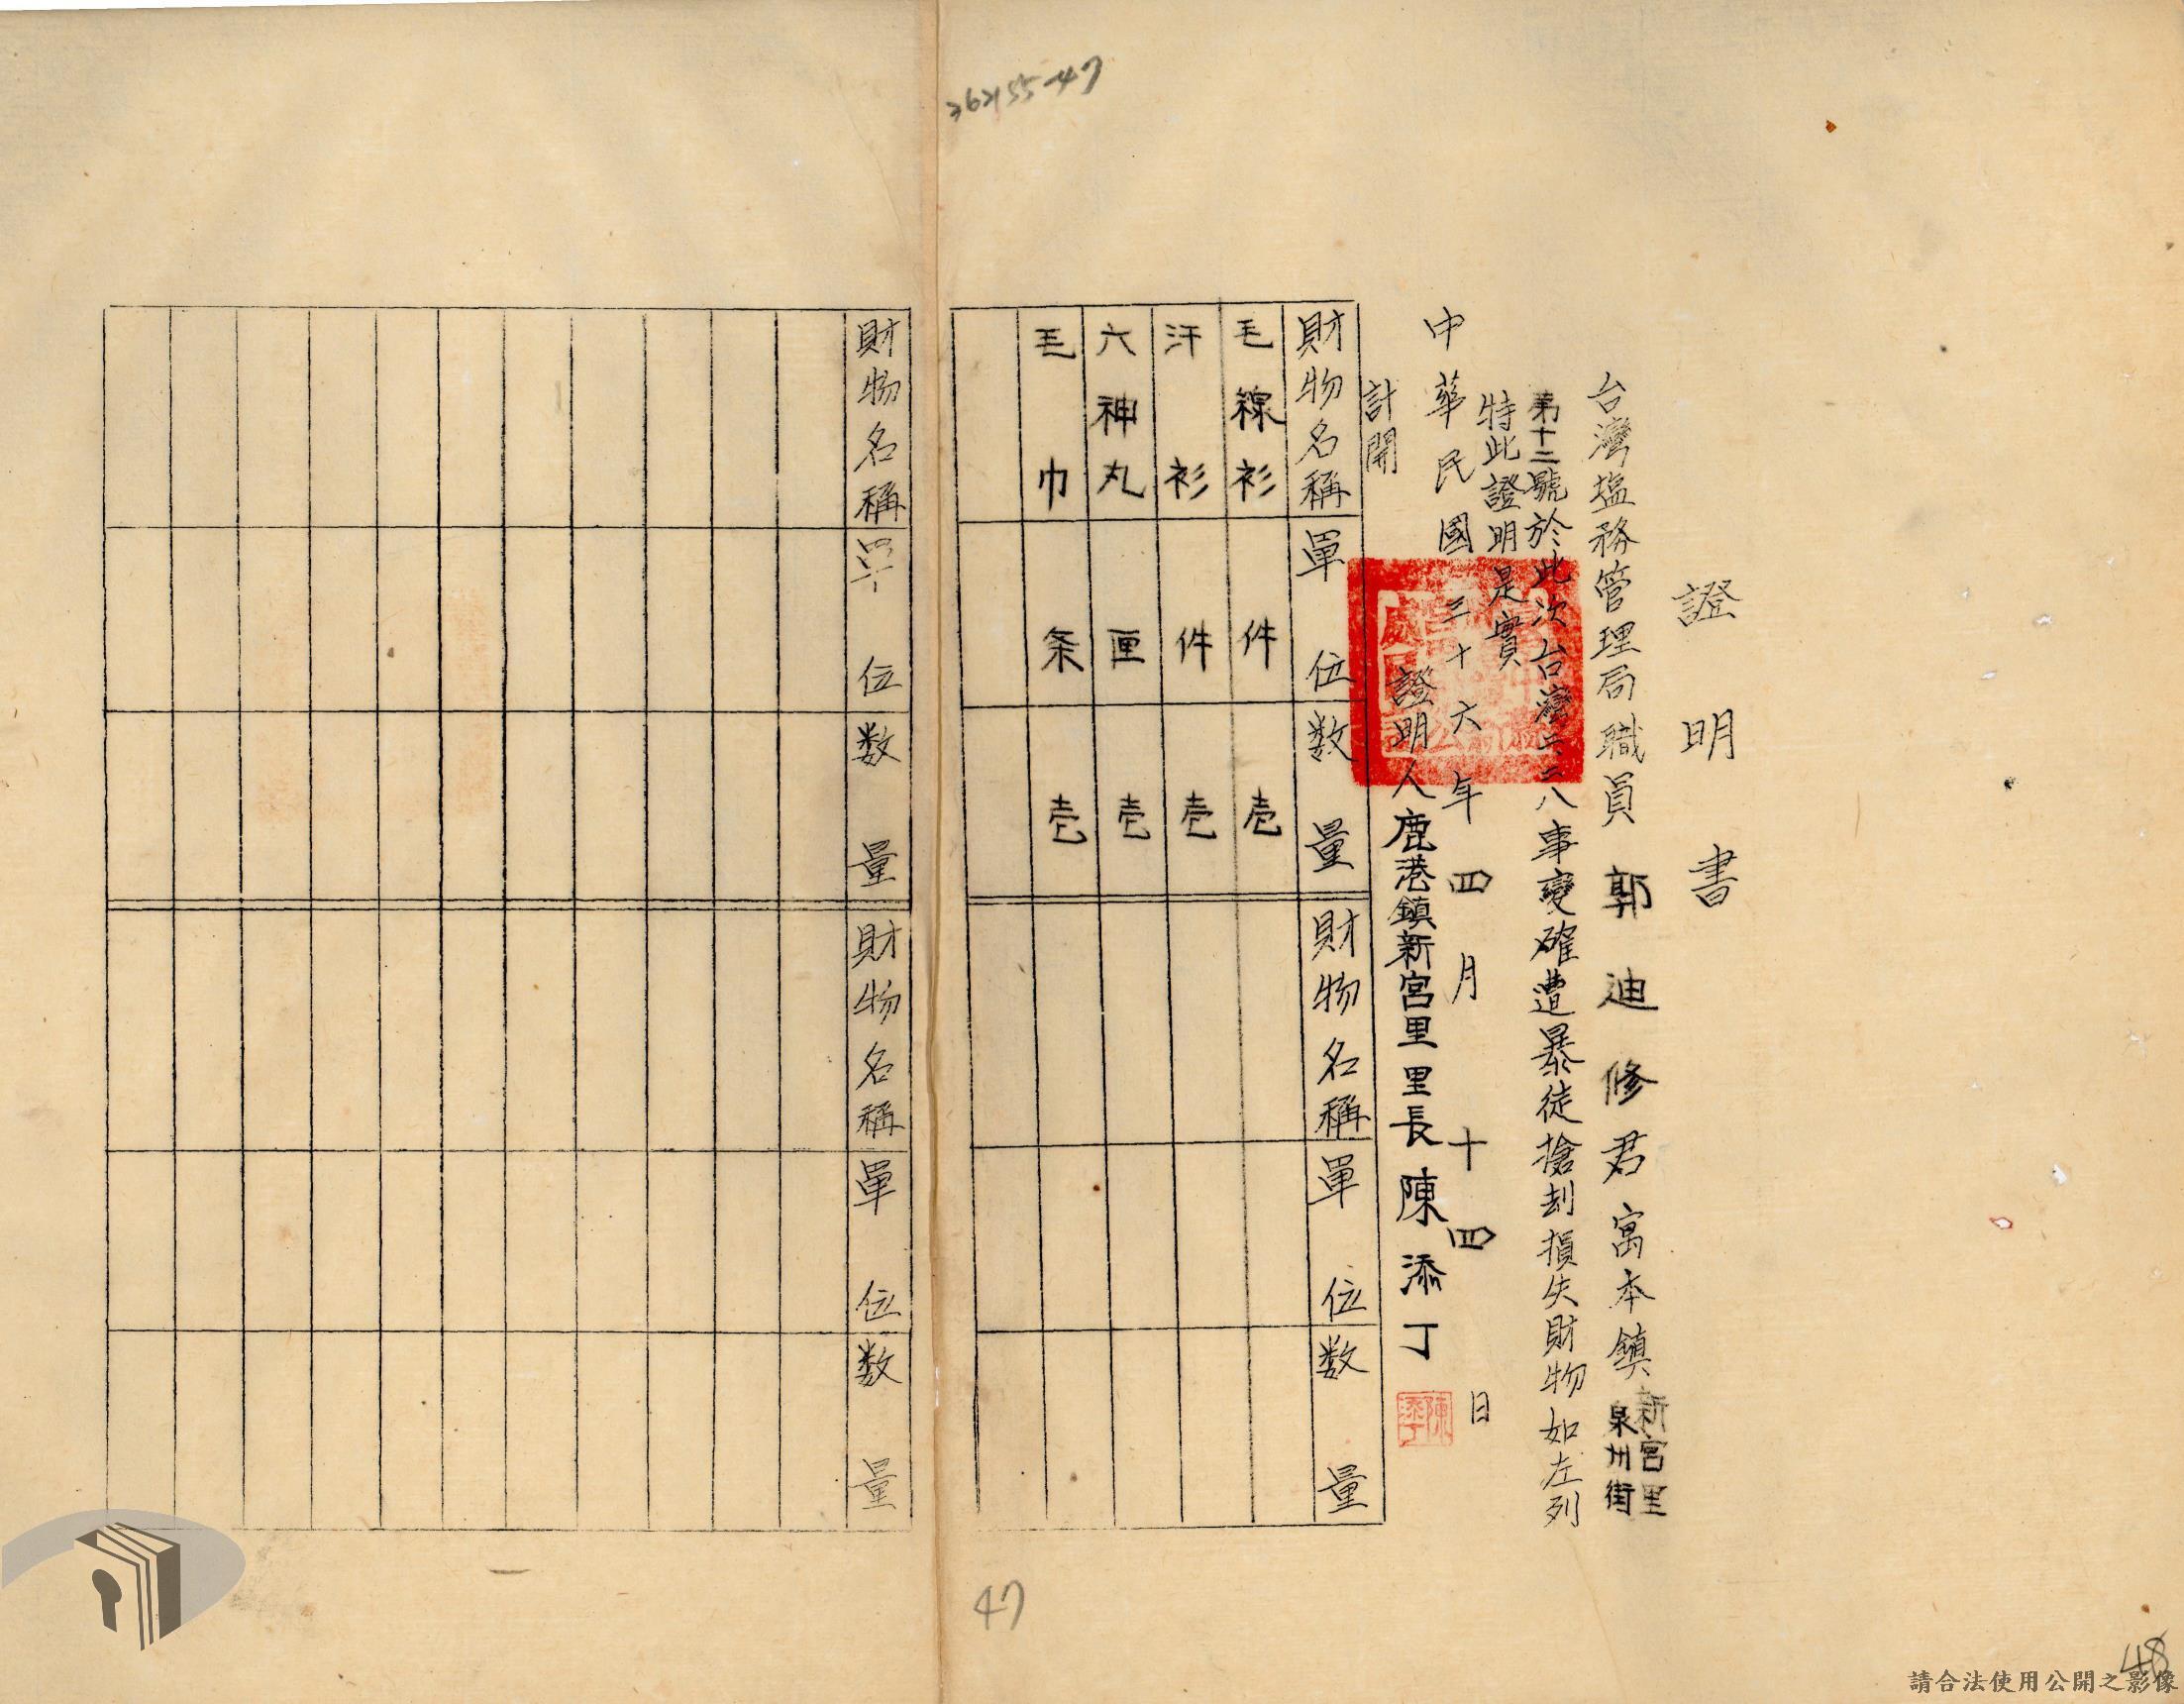 362155-47
證明書
台灣塩務管理局職員郭迪修君寓本鎮新宮里泉州街
第十二號於此次台灣二二八事變確遭暴徒搶刦損失財物如左列
特此證明是實
中華民國三十六年四月十四日
證明人鹿港鎮新宮里里長陳添丁
陳添丁
計開
財物名稱 單位 数量 財物名稱 單位 数量
毛線衫 件 壱
汗衫 件 壱
六神丸 匣 壱
毛巾 条 壱
財物名稱 單位 数量 財物名稱 單位 数量
47
48
請合法使用公開之影像